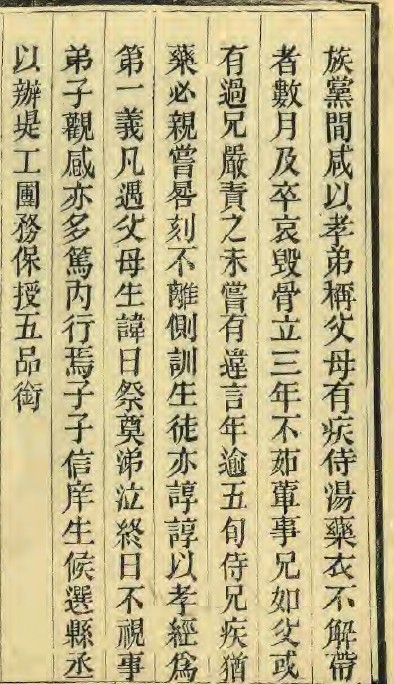 族黨間咸以孝弟稱父母有疾侍湯藥衣不解帶
者數月及卒哀毀骨立三年不茹葷事兄如父或
有過兄嚴責之未嘗有違言年逾五旬侍兄疾猶
藥必親嘗晷刻不離側訓生徒亦諄諄以孝經爲
第一義凡遇父母生諱日祭奠涕泣終日不視事
弟子觀感亦多篤內行焉子子信庠生候選縣丞
以辦堤工團務保授五品銜